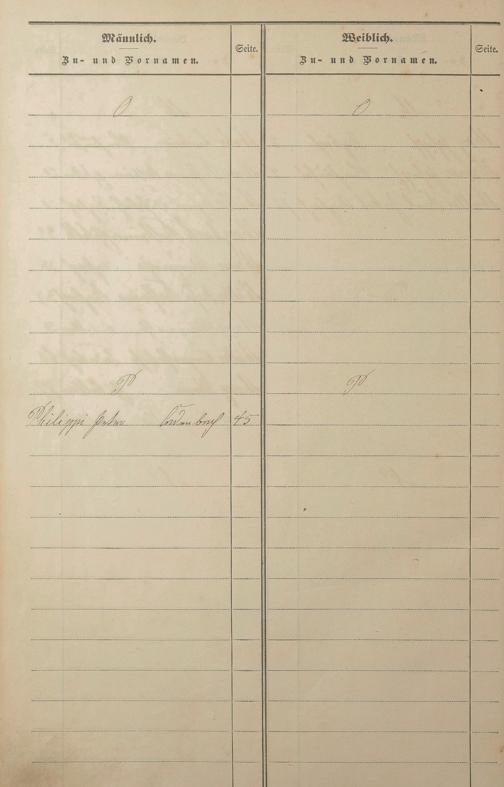 Männlich.
Zu- und Vornamen.
Seite.
Weiblich.
Zu- und Vornamen.
Seite.
O
O
P
P
Philippi Peter 45